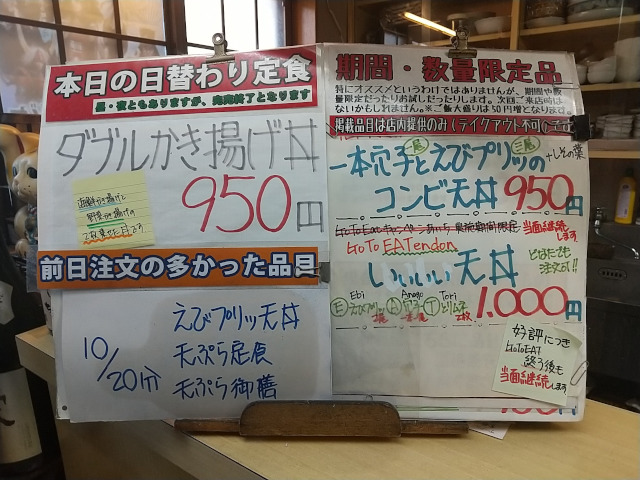 本日の日替わり定食
昼・夜ともありますが、完売終了となります
ダブルかき揚げ丼
950円
野菜かき揚げの
2枚乗せた丼です
前日注文の多かった品目
10/20分
えびプリッ天丼
天ぷら定食
天ぷら御膳
期間・数量限定品
特にオススメというわけではありませんが、期間や数
量限定だったりお試しだったりします。次回ご来店時は
ないかもしれません。※ご飯大盛りは50円増となります。
掲載品目は店内提供のみ(テイクアウト不可)です
一本穴子とえびプリッの
一尾
二尾
+しその葉
コンビ天丼 950円
当面継続
します。
GoTo EATendon
いいいい天丼
とはたでも
注文可!!
Ebi Anago Tori
E えびプリッ A アナゴ T とりムネ
2枚
1.000円
好評につき
GoToEAT
終了後も
当面継続します